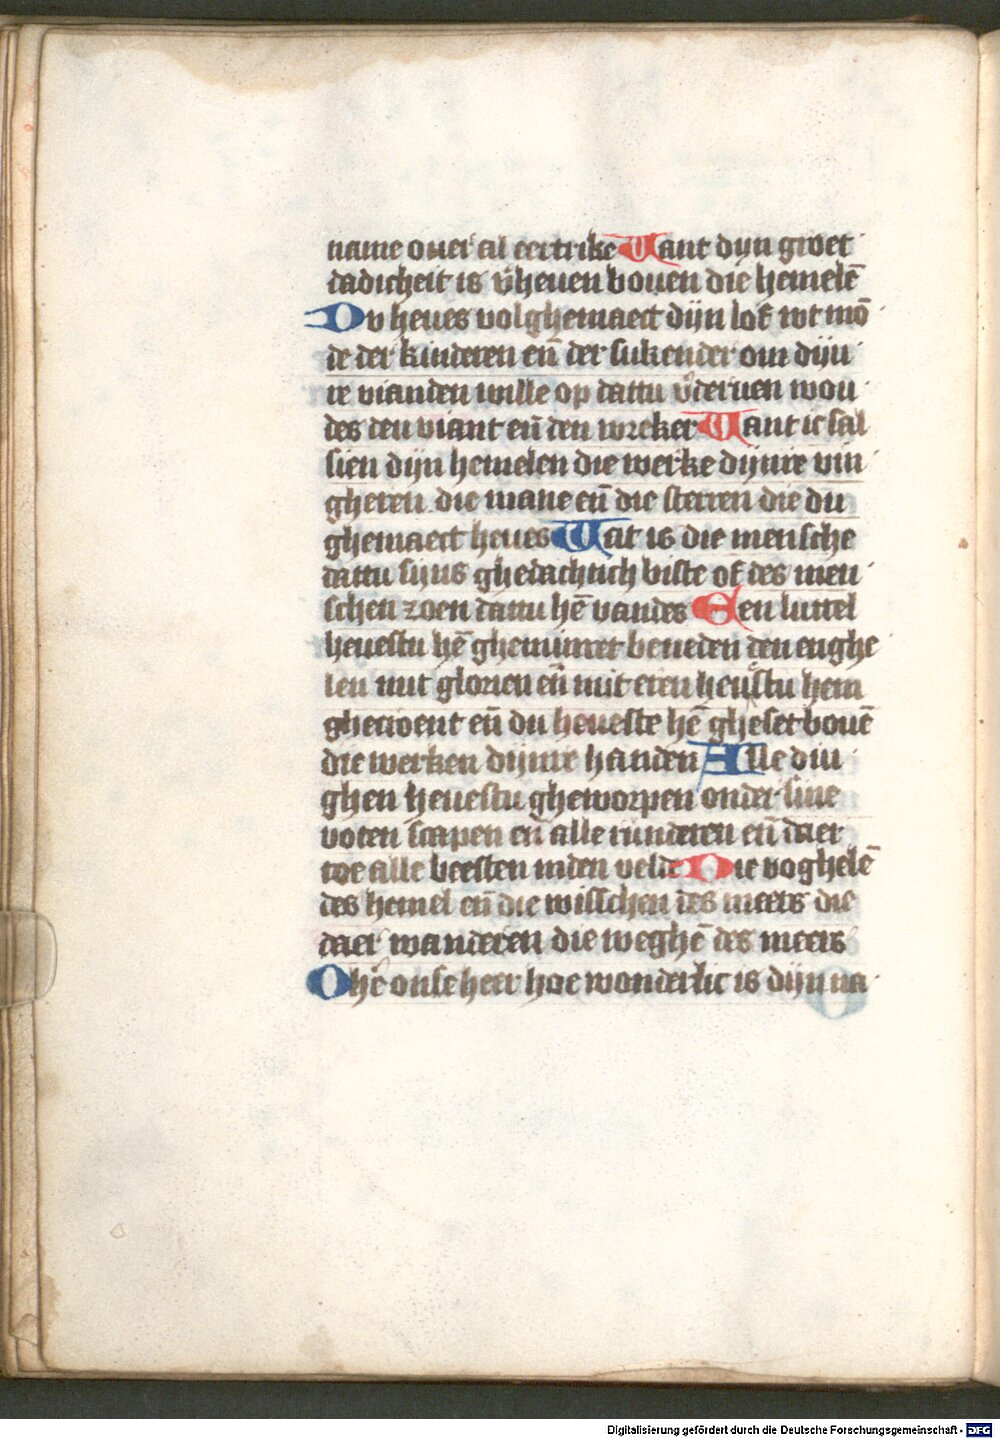 name ouer al eertrike Want dyn groet
dadicheit is v̄heuen bouen die hemelē
Du heues volghemaect dijn lof wt mō
de der kinderen en̄ der sukender om dijn
re vianden wille op dattu v̄deruen wou
des den viant en̄ den wreker Want ic sal
sien dijn hemelen die werke dijnre vin
gheren die mane en̄ die sterren die du
ghemaect heues Wat is die mensche
dattu sijns ghedachtich biste of des men
schen zoen dattu hē vandes Een luttel
heuestu hē gheminret beneden den enghe
len mit glorien en̄ mit eren heuestu hem
ghecroent en̄ du heueste hē gheset bouē
die werken dijnre handen Alle din
ghen heuestu gheworpen onder sine
voten scapen en̄ alle runderen en̄ daer
toe alle beesten inden velde Die voghelē
des hemel en̄ die visschen des meers die
daer wanderen die weghē des meers
O hē onse heer hoe wonderlic is dijn na
Digitalisierung gefördert durch die Deutsche Forschungsgemeinschaft - DFG